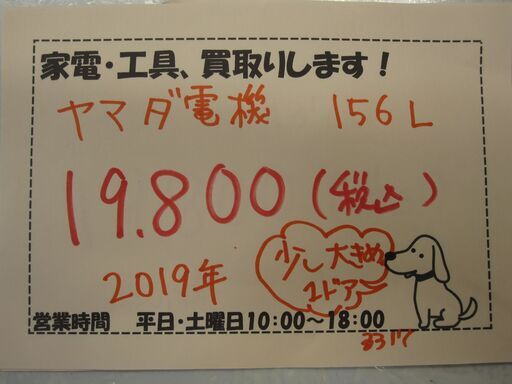 家電・工具、買取りします！
ヤマダ電機 156L
19.800(税込)
2019年
少し大きめ
2ドア
営業時間 平日・土曜日10:00～18:00